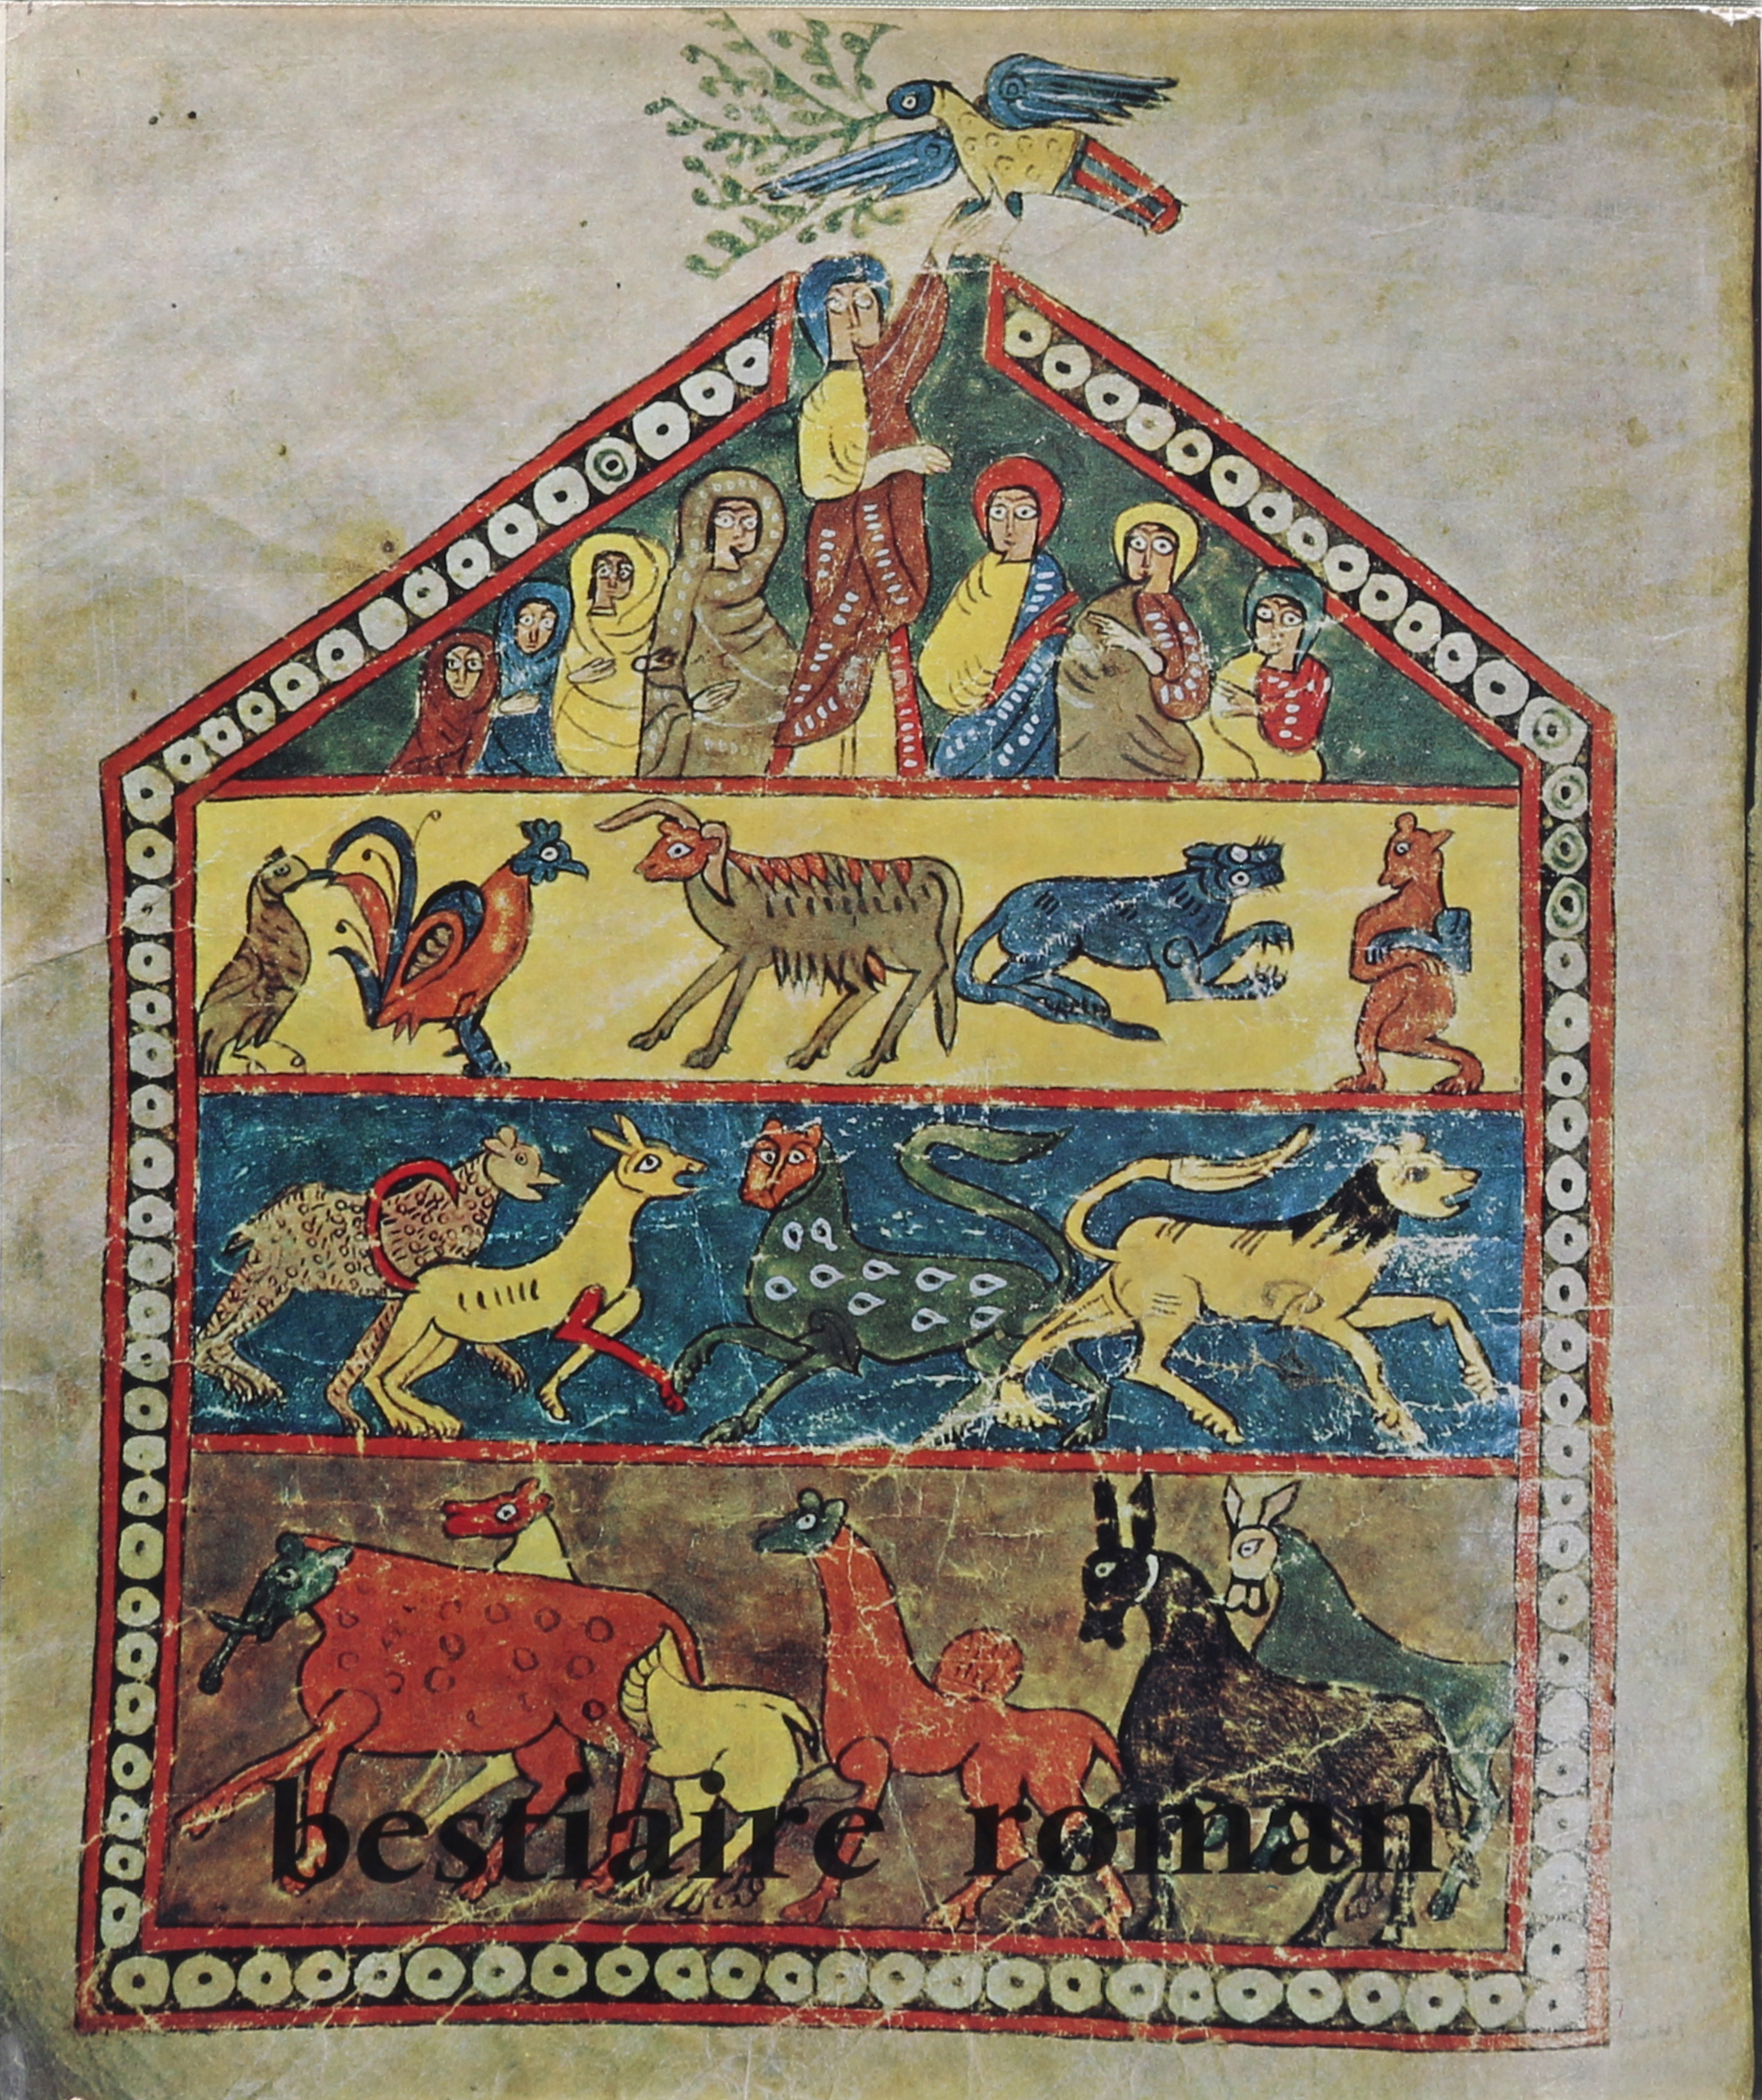 bestiaire roman